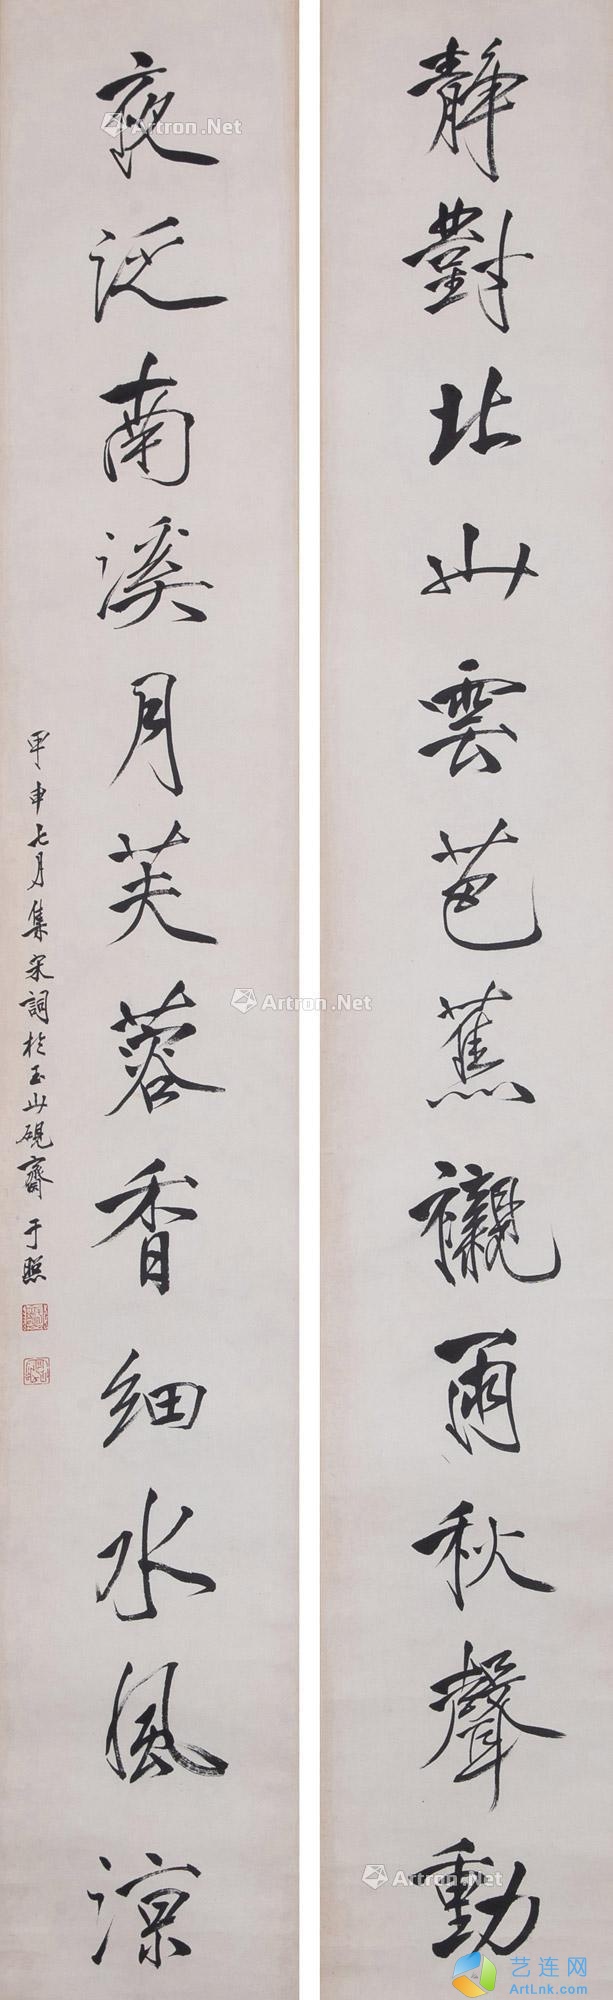 靜對北山雲芭蕉襯雨秋聲動
夜泛南溪月芙蓉香細水風涼
甲申七月集宋詞於玉山硯齋 于照
Artron.Net
Artron.Net
Artron.Net
Artron.Net
艺连网
ArtLnk.com